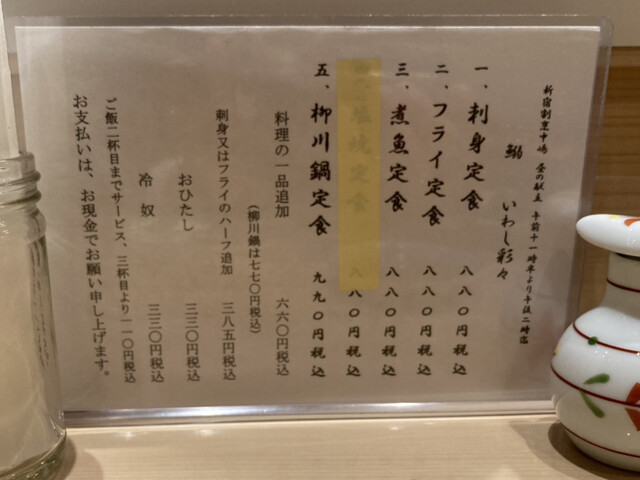 新宿割烹中嶋 昼の献立 午前十一時半より午後二時迄
鰯 いわし彩々
一、刺身定食 八八〇円税込
二、フライ定食 八八〇円税込
三、煮魚定食 八八〇円税込
塩焼定食 八八〇円税込
五、柳川鍋定食 九九〇円税込
料理の一品追加 六六〇円税込
（柳川鍋は七七〇円税込）
刺身又はフライのハーフ追加 三八五円税込
おひたし 三三〇円税込
冷奴 三三〇円税込
ご飯二杯目までサービス、三杯目より一一〇円税込
お支払いは、お現金でお願い申し上げます。